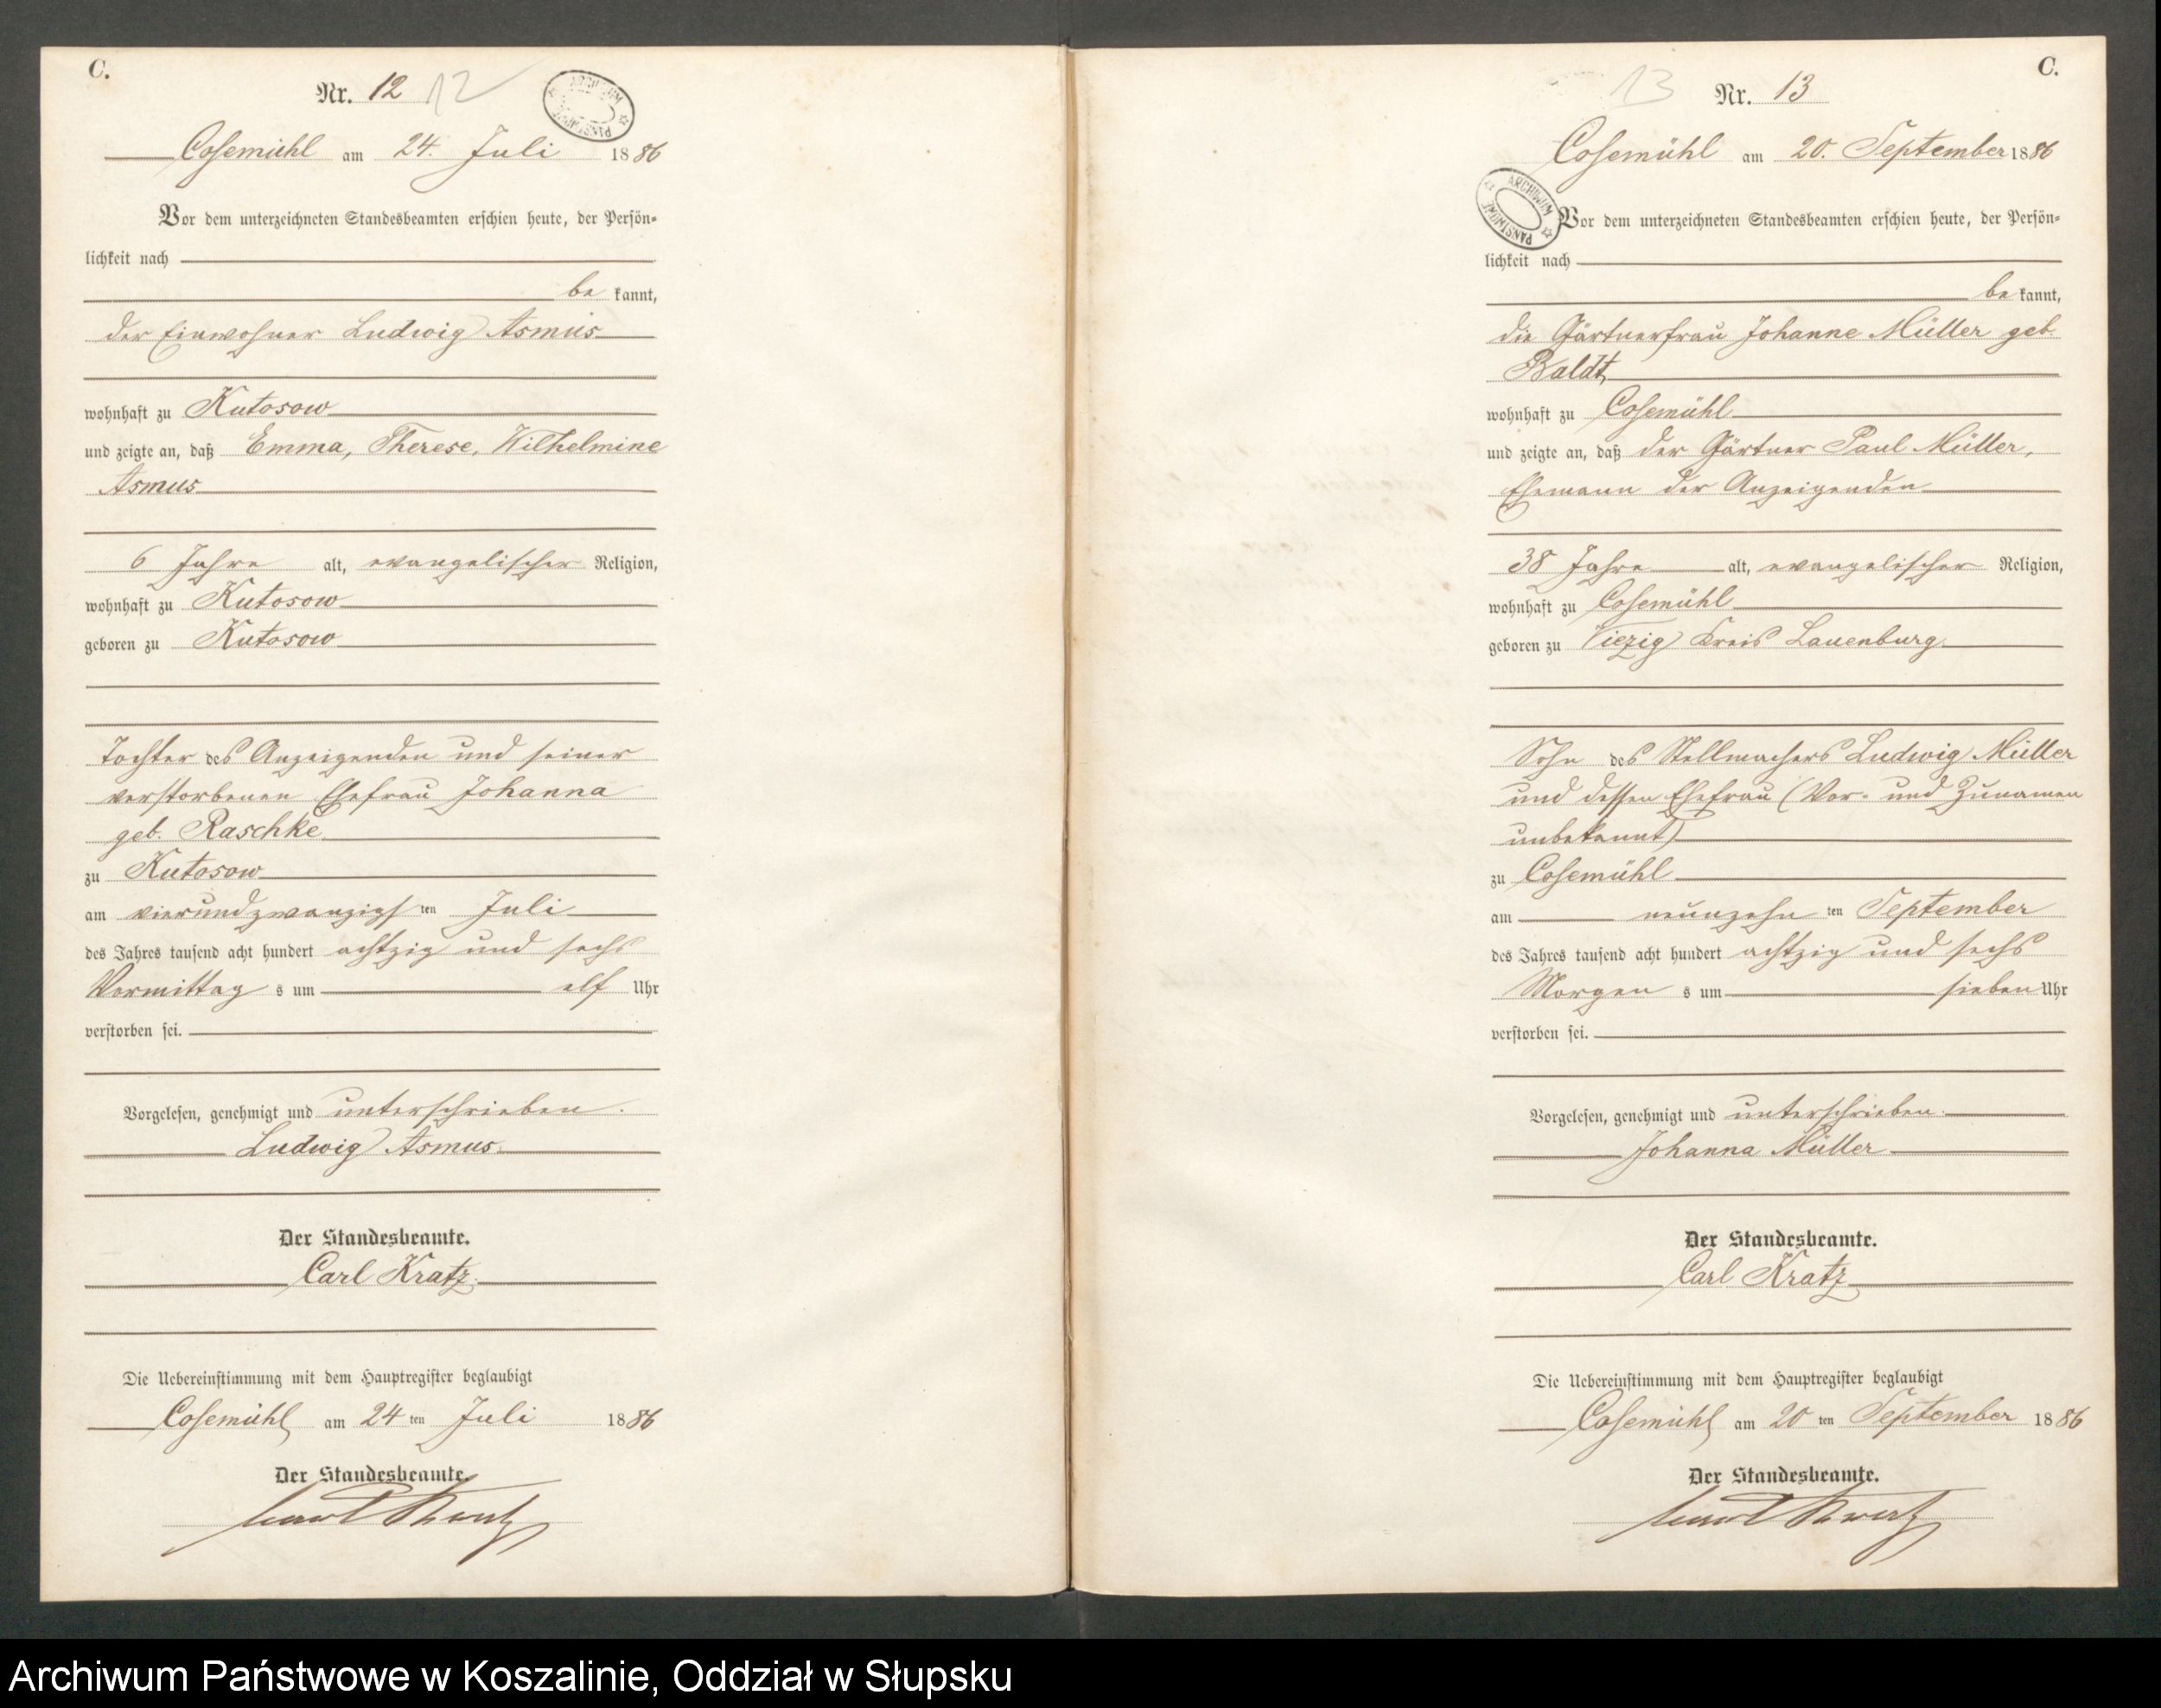 C.
Nr. 12 12
ARCHIWUM PAŃSTWOWE
Cosemühl am 24. Juli 1886
Vor dem unterzeichneten Standesbeamten erschien heute, der Persön-
lichkeit nach
be kannt,
der Einwohner Ludwig Asmus
wohnhaft zu Kutosow
und zeigte an, daß Emma, Therese, Wilhelmine
Asmus
6 Jahre alt, evangelischer Religion,
wohnhaft zu Kutosow
geboren zu Kutosow
Tochter des Anzeigenden und seiner
verstorbenen Ehefrau Johanna
geb. Raschke
zu Kutosow
am vierundzwanzigsten Juli
des Jahres tausend acht hundert achtzig und sechs
Vormittag s um elf Uhr
verstorben sei.
Vorgelesen, genehmigt und unterschrieben.
Ludwig Asmus
Der Standesbeamte.
Carl Kratz.
Die Uebereinstimmung mit dem Hauptregister beglaubigt
Cosemühl am 24 ten Juli 1886
Der Standesbeamte.
Carl Kratz
C.
13 Nr. 13
Cosemühl am 20. September 1886
ARCHIWUM PAŃSTWOWE
Vor dem unterzeichneten Standesbeamten erschien heute, der Persön-
lichkeit nach
be kannt,
die Gärtnerfrau Johanne Müller geb.
Baldt,
wohnhaft zu Cosemühl
und zeigte an, daß der Gärtner Paul Müller,
Ehemann der Anzeigenden
38 Jahre alt, evangelischer Religion,
wohnhaft zu Cosemühl
geboren zu Viezig Kreis Lauenburg
Sohn des Stellmachers Ludwig Müller
und dessen Ehefrau (Vor- und Zunamen
unbekannt)
zu Cosemühl
am neunzehn ten September
des Jahres tausend acht hundert achtzig und sechs
Morgen s um sieben Uhr
verstorben sei.
Vorgelesen, genehmigt und unterschrieben.
Johanna Müller
Der Standesbeamte.
Carl Kratz
Die Uebereinstimmung mit dem Hauptregister beglaubigt
Cosemühl am 20 ten September 1886
Der Standesbeamte.
Carl Kratz
Archiwum Państwowe w Koszalinie, Oddział w Słupsku